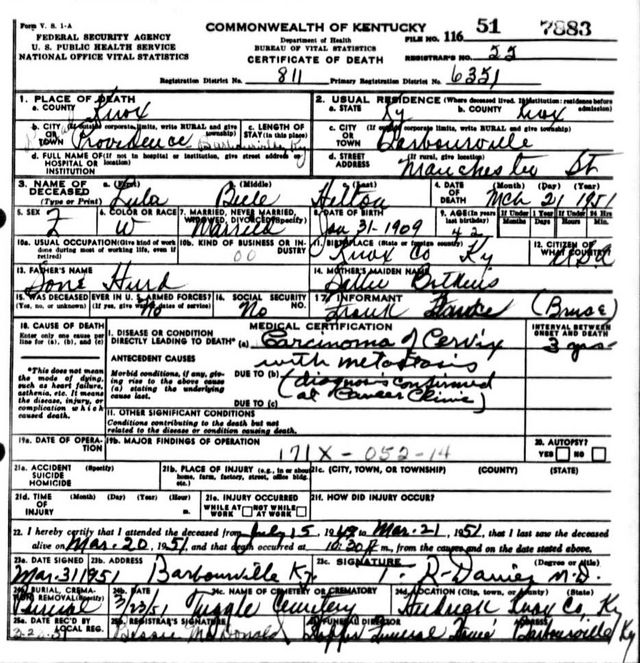 Form V. S. 1-A
COMMONWEALTH OF KENTUCKY
FEDERAL SECURITY AGENCY
U. S. PUBLIC HEALTH SERVICE
NATIONAL OFFICE VITAL STATISTICS
Department of Health
BUREAU OF VITAL STATISTICS
CERTIFICATE OF DEATH
FILE NO. 116 51 7883
REGISTRAR'S NO. 55
Registration District No. 811 Primary Registration District No. 6351
1. PLACE OF DEATH
a. COUNTY Knox
2. USUAL RESIDENCE (Where deceased lived. If institution: residence before admission)
a. STATE Ky b. COUNTY Knox
b. CITY (If outside corporate limits, write RURAL and give township)
OR TOWN Providence Barbourville Ky
c. LENGTH OF STAY (in this place)
c. CITY (If outside corporate limits, write RURAL and give township)
OR TOWN Barbourville
d. FULL NAME OF (If not in hospital or institution, give street address or location)
HOSPITAL OR INSTITUTION
d. STREET ADDRESS (If rural, give location)
Manchester St
3. NAME OF DECEASED (Type or Print)
a. (First) Lula (Middle) (Last) Hilton
4. DATE OF DEATH (Month) (Day) (Year)
Mch 21 1951
5. SEX F
6. COLOR OR RACE W
7. MARRIED, NEVER MARRIED, WIDOWED, DIVORCED (Specify) Married
8. DATE OF BIRTH Jan 31-1909
9. AGE (In years last birthday) 42
If Under 1 Year Months Days
If Under 24 Hrs Hours Min.
10a. USUAL OCCUPATION (Give kind of work done during most of working life, even if retired)
10b. KIND OF BUSINESS OR INDUSTRY 00
11. BIRTHPLACE (State or foreign country) Knox Co Ky
12. CITIZEN OF WHAT COUNTRY? USA
13. FATHER'S NAME
Hurd
14. MOTHER'S MAIDEN NAME
Sallie
15. WAS DECEASED EVER IN U. S. ARMED FORCES?
(Yes, no, or unknown) (If yes, give war or dates of service) No
16. SOCIAL SECURITY NO. No
17. INFORMANT
Frank
18. CAUSE OF DEATH
Enter only one cause per line for (a), (b), and (c)
MEDICAL CERTIFICATION
INTERVAL BETWEEN ONSET AND DEATH
3 yrs
I. DISEASE OR CONDITION
DIRECTLY LEADING TO DEATH* (a) Carcinoma of Cervix
with metastasis
*This does not mean the mode of dying, such as heart failure, asthenia, etc. It means the disease, injury, or complication which caused death.
ANTECEDENT CAUSES
Morbid conditions, if any, giving rise to the above cause (a) stating the underlying cause last.
DUE TO (b) (diagnosis confirmed
DUE TO (c) at Cancer Clinic)
II. OTHER SIGNIFICANT CONDITIONS
Conditions contributing to the death but not related to the disease or condition causing death.
19a. DATE OF OPERATION
19b. MAJOR FINDINGS OF OPERATION
171X-052-14
20. AUTOPSY?
YES NO
21a. ACCIDENT (Specify)
SUICIDE
HOMICIDE
21b. PLACE OF INJURY (e.g., in or about home, farm, factory, street, office bldg. etc.)
21c. (CITY, TOWN, OR TOWNSHIP) (COUNTY) (STATE)
21d. TIME OF INJURY (Month) (Day) (Year) (Hour)
21e. INJURY OCCURRED
WHILE AT WORK NOT WHILE AT WORK
21f. HOW DID INJURY OCCUR?
22. I hereby certify that I attended the deceased from July 15, 1948 to Mar. 21, 1951, that I last saw the deceased
alive on Mar. 20, 1951, and that death occurred at 10:30 P m., from the causes and on the date stated above.
23a. DATE SIGNED Mar. 31 1951
23b. ADDRESS Barbourville Ky.
23c. SIGNATURE (Degree or title)
T. R. Davies M.D.
24a. BURIAL, CREMATION, REMOVAL (Specify) Burial
24b. DATE 3/23/51
24c. NAME OF CEMETERY OR CREMATORY
Tuggle Cemetery
24d. LOCATION (City, town, or county) (State)
Knox Co, Ky
25a. DATE REC'D BY LOCAL REG.
25b. REGISTRAR'S SIGNATURE
Bessie McDonald
FUNERAL DIRECTOR
Funeral Home
ADDRESS
Barbourville Ky